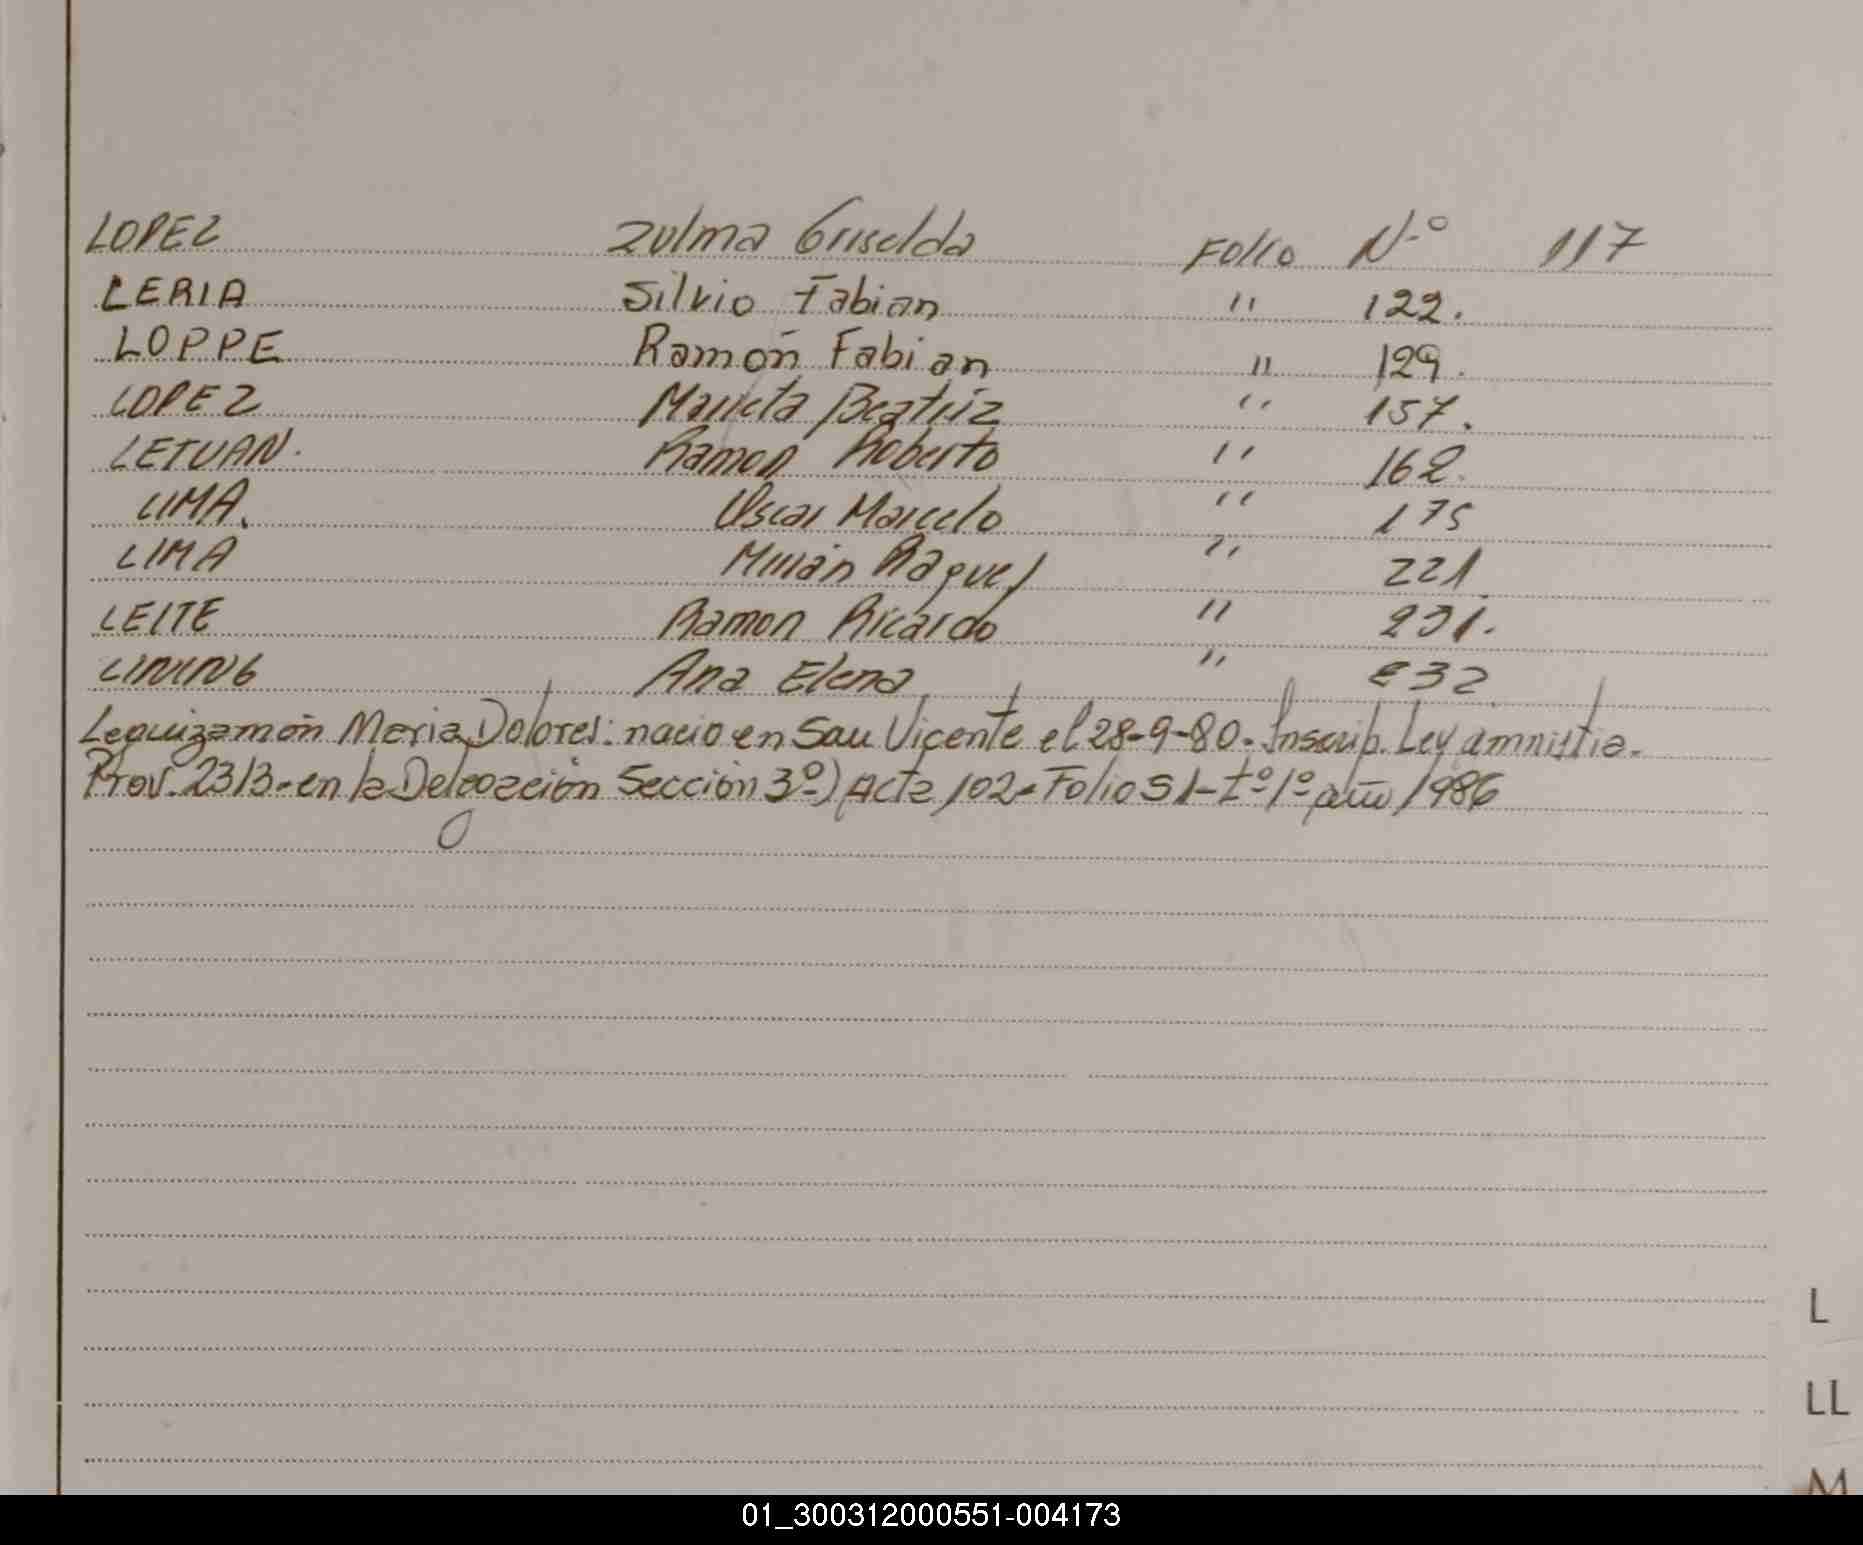 LOPEZ Zulma Griselda Folio N.º 117
LERIA Silvio Fabian " 122.
LOPPE Ramón Fabian " 129.
LOPEZ Marieta Beatriz " 157.
LETUAN. Ramon Roberto " 162.
LIMA. Oscar Marcelo " 175
LIMA Mirián Raquel " 221.
LEITE Ramon Ricardo " 231.
LINING Ana Elena " 232
Leguizamón Maria Dolores: nacio en San Vicente el 28-9-80. Inscrip. Ley amnistia.
Prov. 2313. en la Delegación Sección 3º) Acta 102- Folio 51- tº 1º año 1986
L
LL
M
01_300312000551-004173